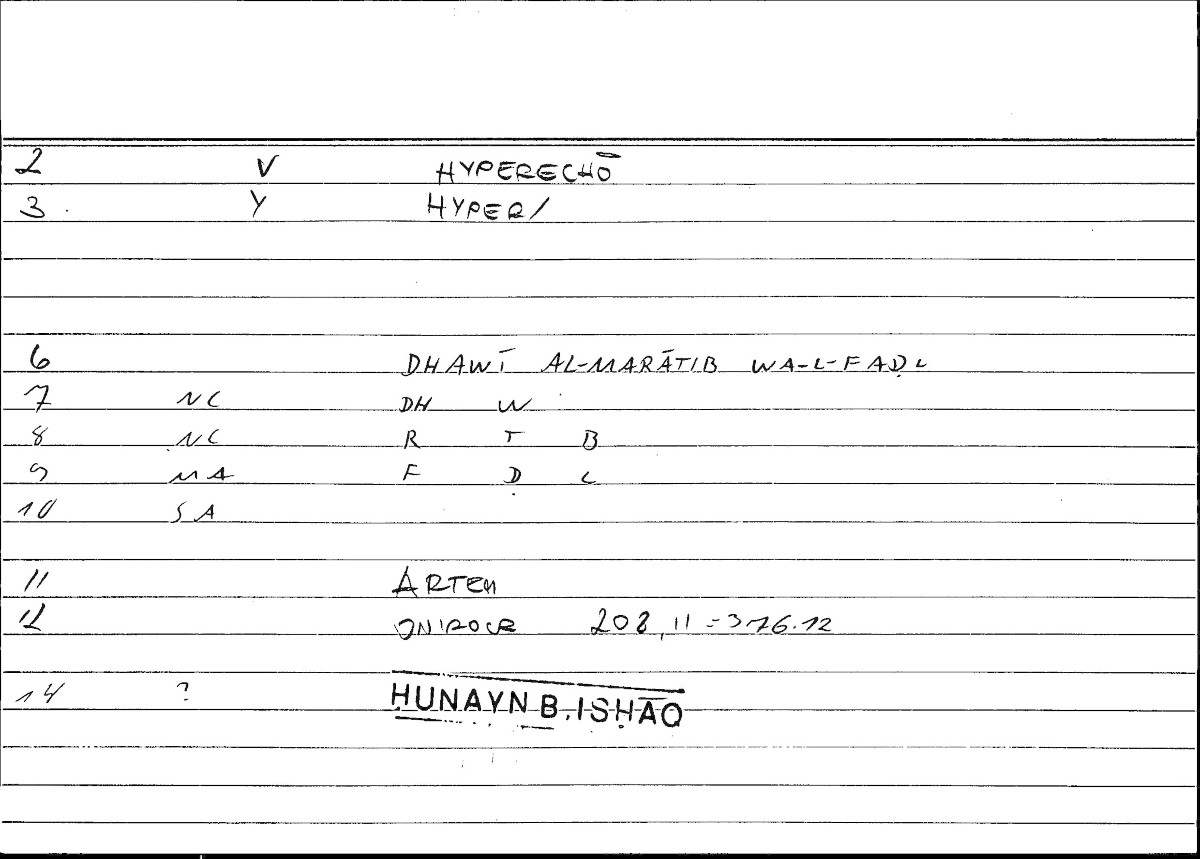 2 V HYPERECHŌ
3 Y HYPER/
6 DHAWĪ AL-MARĀTIB WA-L-FAḌL
7 NC DH W
8 NC R T B
9 MA F Ḍ L
10 SA
11 ARTEM
12 ONIROCR 208,11 = 376.12
14 ? ḤUNAYN B. ISḤĀQ